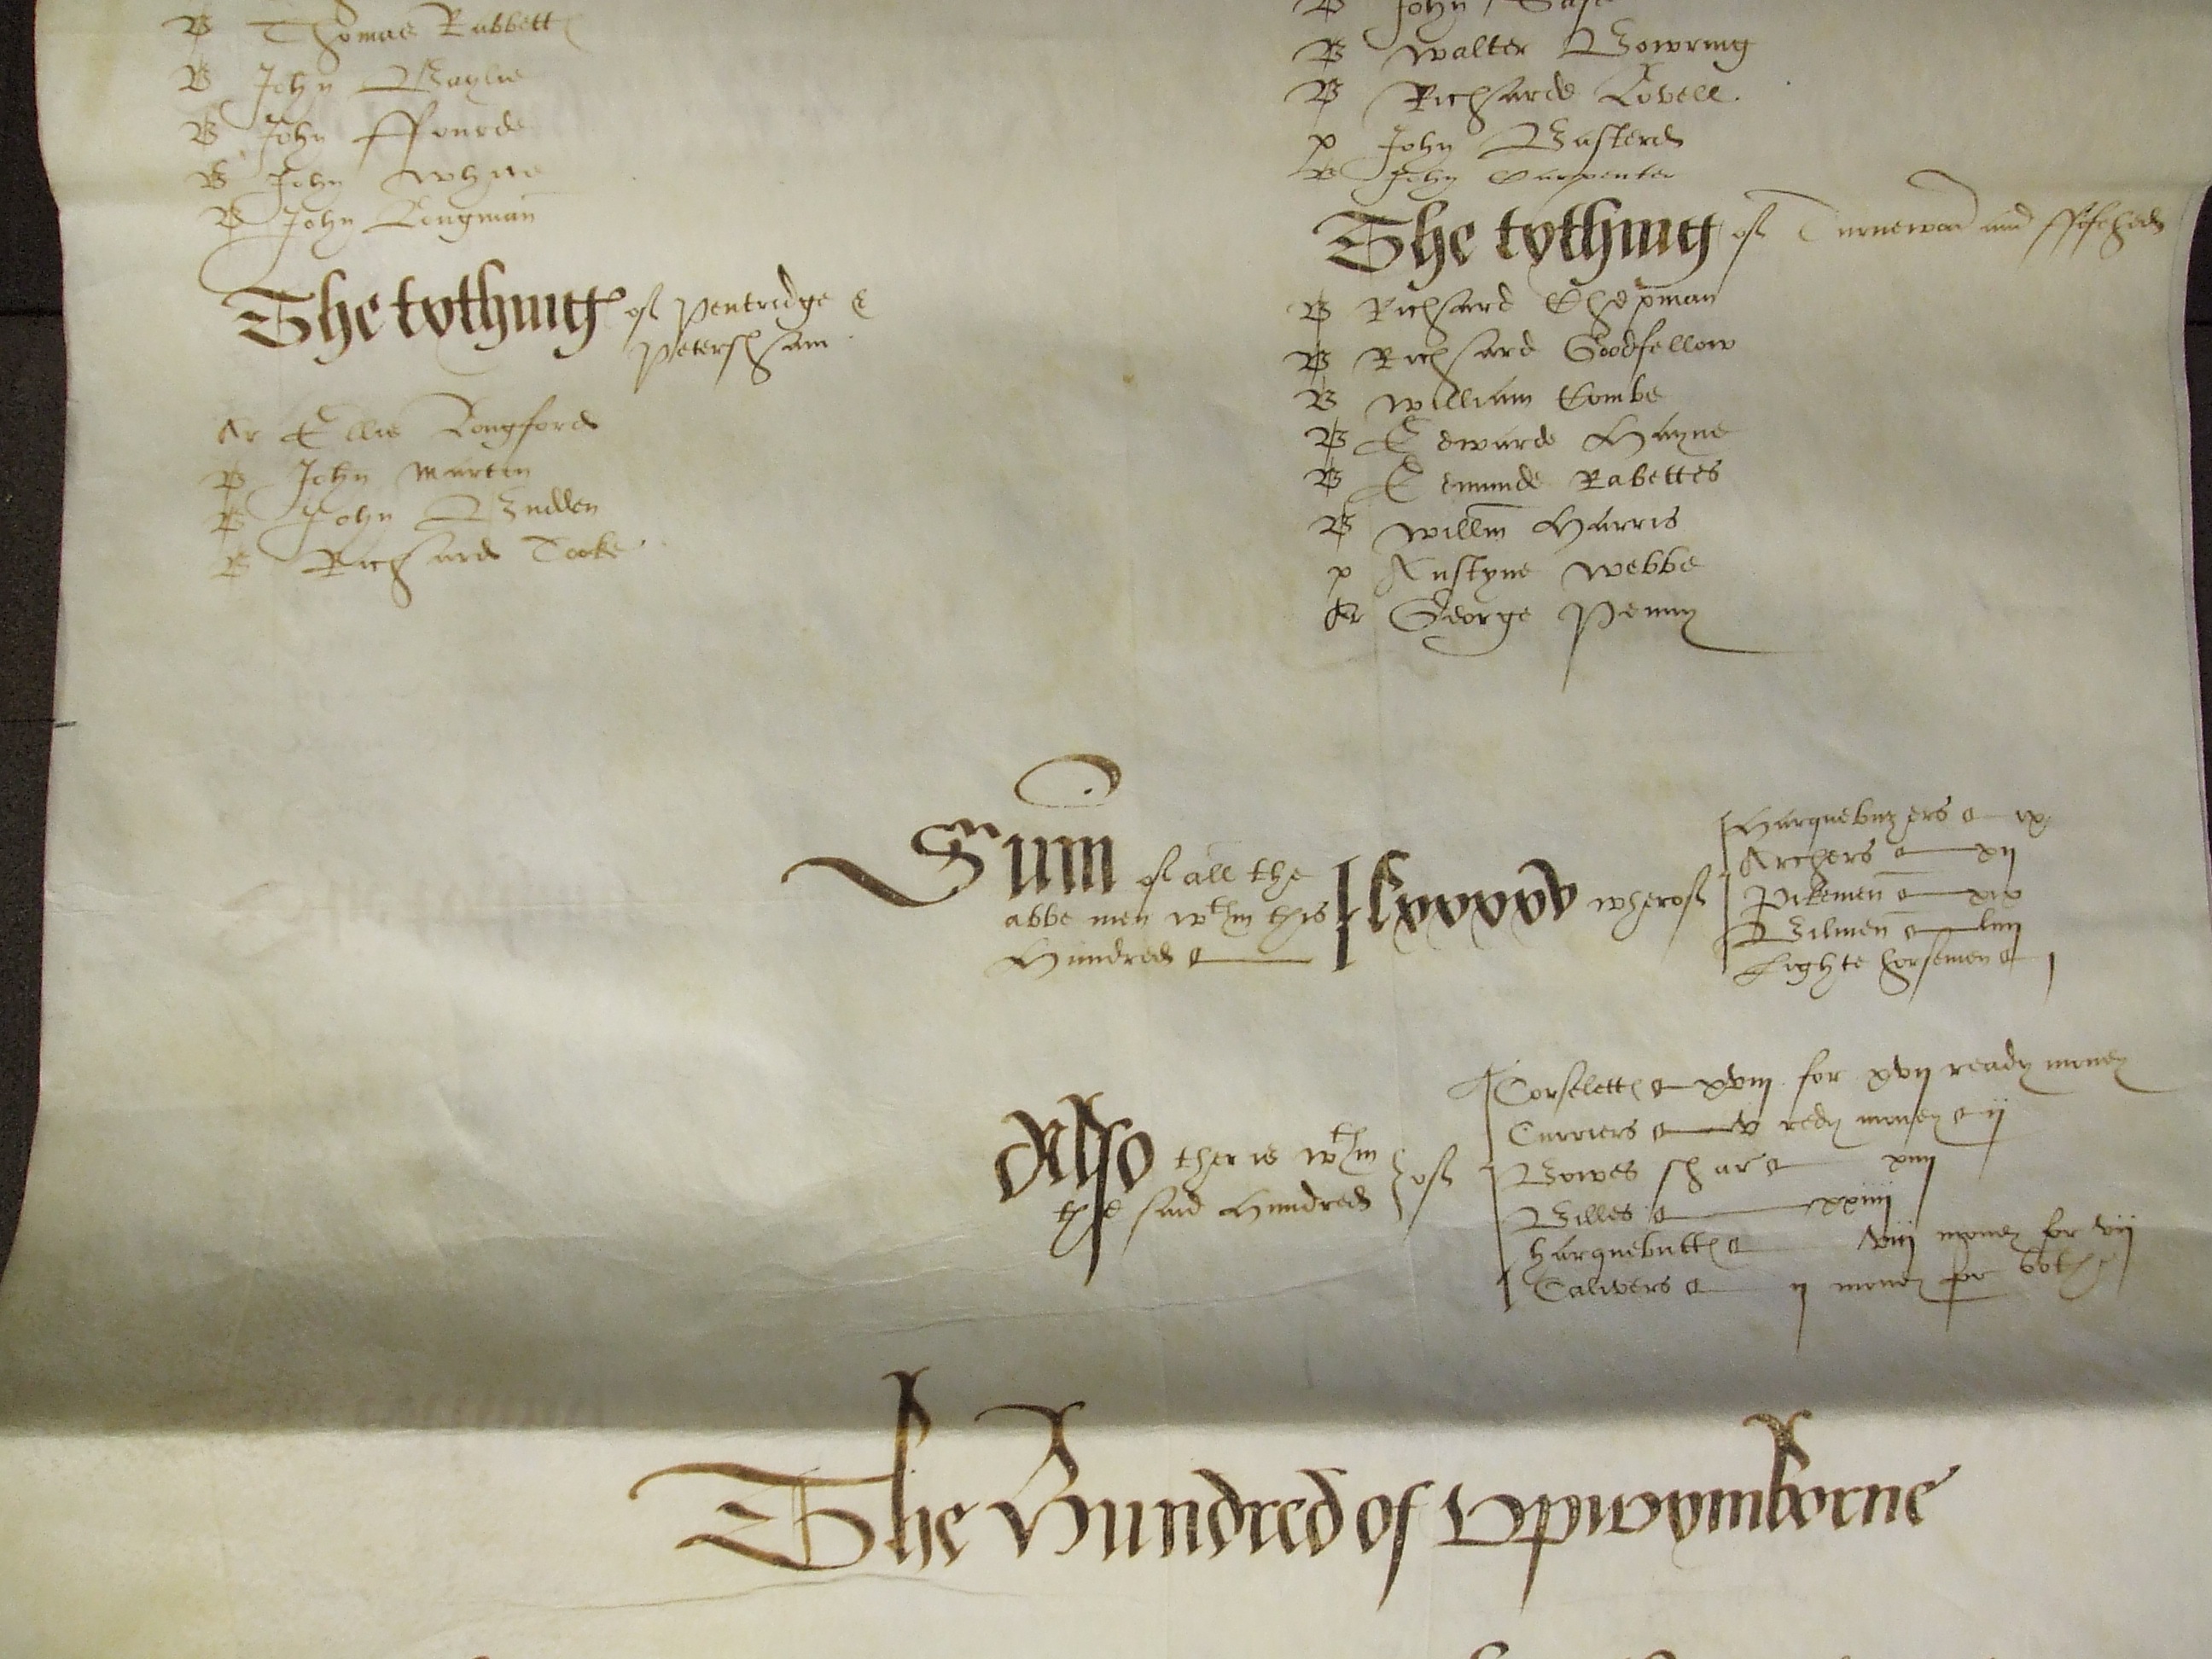 B Thomas Rabbett
B John Baylie
B John ffourde
B John Whyte
B John Longman
The tythyng of Pentridge &
Petersham
Ar Ellis Longford
P John Martin
P John Budden
B Richard Tooke
John
B Walter Bowring
B Richarde Lovell.
p John Basterd
B John Carpenter
The tythyng of Turnewod and ffifehed
B Richard Chepman
B Richard Goodfellow
B William Combe
B Edwarde Hayne
B Edmunde Rabettes
B Willm Harris
p Austyne Webbe
Ar George Penny
Sum of all the
abbe men wthin this
Hundred
lxxxxv wherof
Harquebuzers ix
Archers xij
Pikemen xix
Bilmen liiij
Lighte horsemen j
Also ther is wthin
the said Hundred
of
Corselett xviij for xvij ready money
Curriers v redy money ij
Bowes shar xiiij
Billes xxiiij
harquebutt viij money for vij
Calivers ij money for bothe
The Hundred of Upwymborne